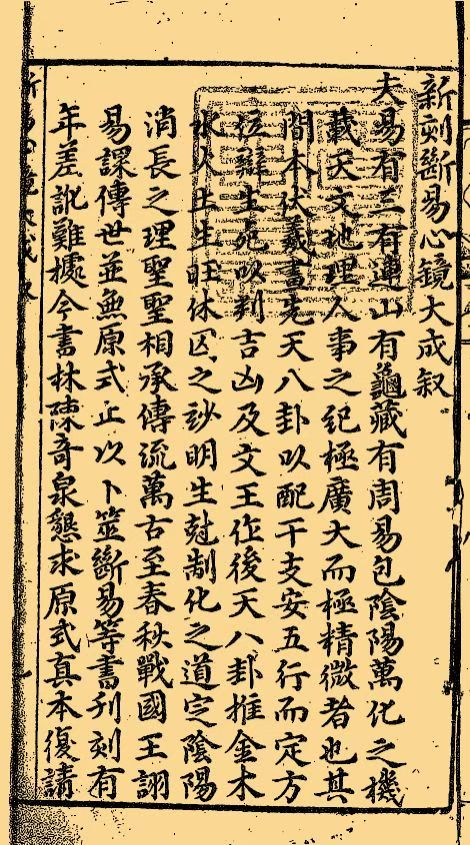 新刻斷易心鏡大成叙
夫易有三有連山有龜藏有周易包陰陽萬化之機
載天文地理人事之紀極廣大而極精微者也其
間本伏羲畫先天八卦以配干支安五行而定方
位辯生死以判吉凶及文王作後天八卦推金木
水火土生旺休囚之玅明生尅制化之道定陰陽
消長之理聖聖相承傳流萬古至春秋戰國王詡
易課傳世並無原式止以卜筮斷易等書刋刻有
年差訛難據今書林陳奇泉懇求原式真本復請